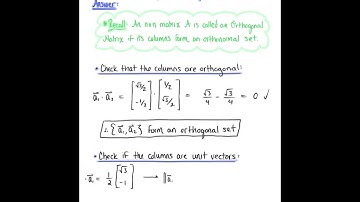 Answer:
* Recall: An nxn matrix A is called an Orthogonal
Matrix if its columns form an orthonormal set.
* Check that the columns are orthogonal:
a⃗₁ · a⃗₂ = [√3/2 -1/2] · [1/2 √3/2] = √3/4 - √3/4 = 0 ✓
∴ {a⃗₁, a⃗₂} form an orthogonal set
* Check if the columns are unit vectors:
· a⃗₁ = 1/2 [√3 -1] → ‖a⃗₁